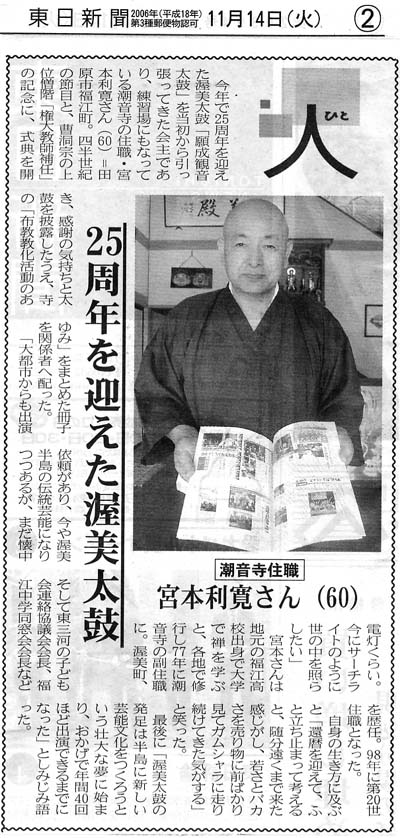 東日新聞
2006年(平成18年)
第3種郵便物認可
11月14日(火)
②
人
ひと
25周年を迎えた渥美太鼓
潮音寺住職
宮本利寛さん(60)
今年で25周年を迎え
た渥美太鼓「願成観音
太鼓」を当初から引っ
張ってきた会主であ
り、練習場にもなって
いる潮音寺の住職・宮
本利寛さん(60)=田
原市福江町。四半世紀
の節目と、曹洞宗の上
位僧階「権大教師補任」
の記念に、式典を開
き、感謝の気持ちと太
鼓を披露したうえ、寺
の「布教教化活動のあ
ゆみ」をまとめた冊子
を関係者へ配った。
「大都市からも出演
依頼があり、今や渥美
半島の伝統芸能になり
つつあるが、まだ懐中
電灯くらい。
今にサーチラ
イトのように
世の中を照ら
したい」
宮本さんは
地元の福江高
校出身で大学
で禅を学ぶ
と、各地で修
行し77年に潮
音寺の副住職
に。渥美町、
そして東三河の子ども
会連絡協議会会長、福
江中学同窓会会長など
を歴任。98年に第20世
住職となった。
自身の生き方に及ぶ
と「還暦を迎えて、ふ
と立ち止まって考える
と、随分遠くまで来た
感じがし、若さとバカ
さを売り物に前ばかり
見てガムシャラに走り
続けてきた気がする」
と笑った。
最後に「渥美太鼓の
発足は半島に新しい
芸能文化をつくろうと
いう壮大な夢に始ま
り、おかげで年間40回
ほど出演できるまでに
なった」としみじみ語
った。